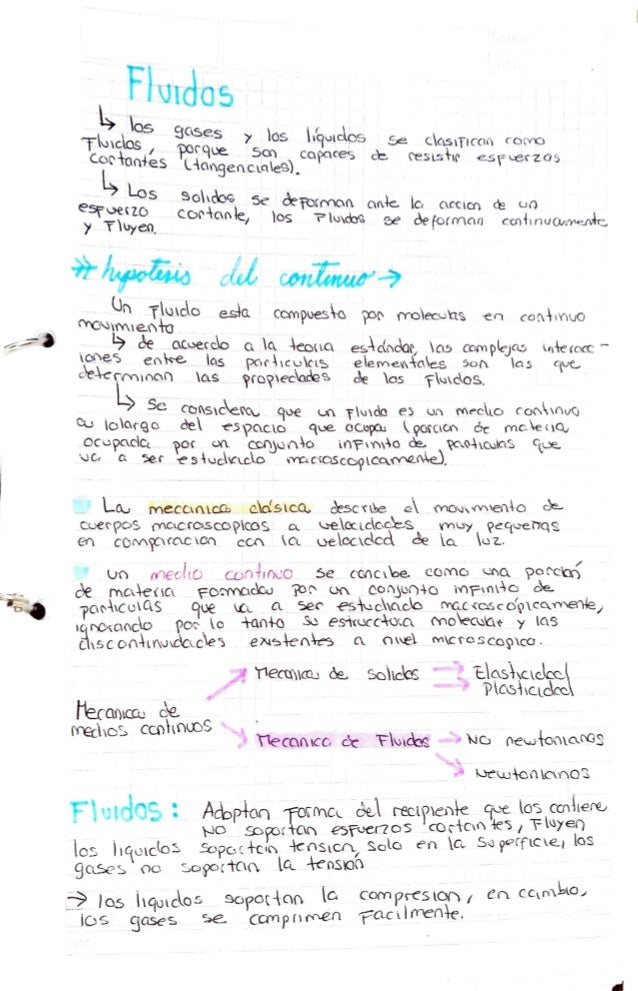 Fluidos
↳ los gases y los líquidos se clasifican como
Fluidos, porque son capaces de resistir esfuerzos
cortantes (tangenciales).
↳ Los solidos se deforman ante la accion de un
esfuerzo cortante, los Fluidos se deforman continuamente
y Fluyen.
hipotesis del continuo →
Un Fluido esta compuesto por moleculas en continuo
movimiento
↳ de acuerdo a la teoria estándar, las complejas interacc-
iones entre las particulas elementales son las que
determinan las propiedades de los Fluidos.
↳ Se considera que un Fluido es un medio continuo
a lo largo del espacio que ocupa (porcion de materia
ocupada por un conjunto infinito de particulas que
va a ser estudiado macroscopicamente).
La mecanica clásica describe el movimiento de
cuerpos macroscopicos a velocidades muy pequeñas
en comparacion con la velocidad de la luz.
un medio continuo se concibe como una porción
de materia Formada por un conjunto infinito de
particulas que va a ser estudiado macroscópicamente,
ignorando por lo tanto su estructura molecular y las
discontinuidades existentes a nivel microscopico.
Mecanica de solidos → Elasticidad
→ Plasticidad
Mecanica de
medios continuos
Mecanica de Fluidos → No newtonianos
→ Newtonianos
Fluidos: Adoptan Forma del recipiente que los contiene
No soportan esfuerzos cortantes, Fluyen
los liquidos soportan tension, solo en la superficie, los
gases no soportan la tensión
→ los liquidos soportan la compresion, en cambio,
los gases se comprimen Facilmente.